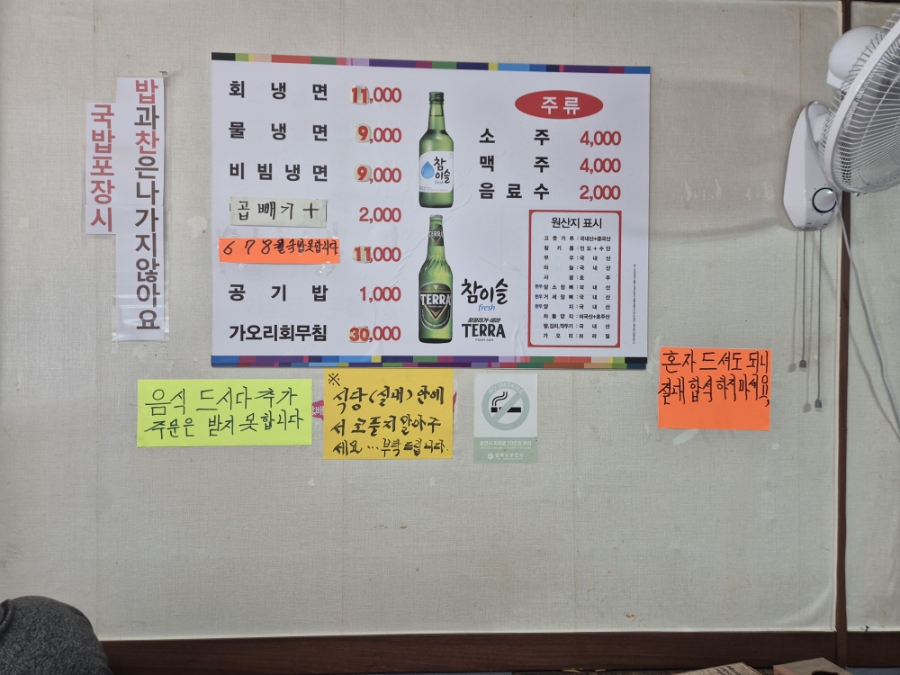 국밥포장시
밥과찬은나가지않아요
회 냉 면 11,000
물 냉 면 9,000
비빔냉면 9,000
곱빼기+ 2,000
6 7 8월 국밥못합니다 11,000
공 기 밥 1,000
가오리회무침 30,000
참이슬
fresh
TERRA
참이슬
fresh
TERRA
주류
소 주 4,000
맥 주 4,000
음료수 2,000
원산지 표시
고춧가루:국내산+중국산
참기름:인도+수단
무 우:국내산
마 늘:국내산
사 골:호주
음식 드시다 추가
주문은 받지 못합니다
※
식당(실내) 안에
서 코풀지 말아주
세요...부탁드립니다.
혼자 드셔도 되니
절대 합석 하지마세요